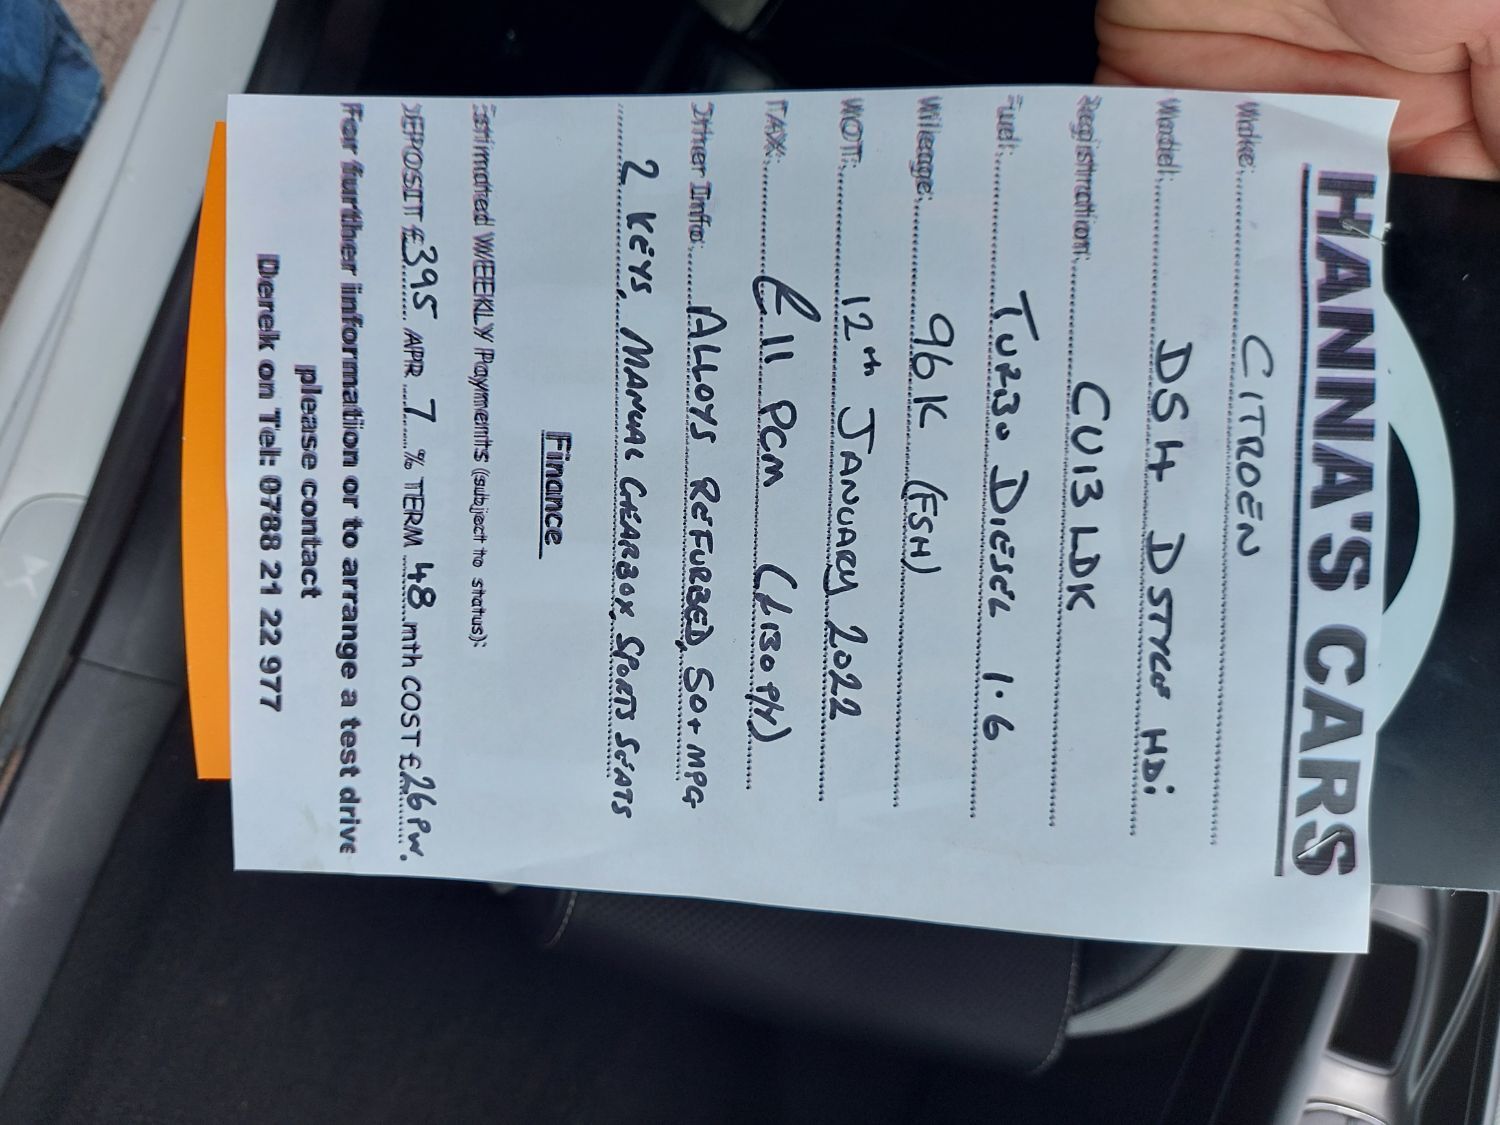 HANNA'S CARS
Make: CITROEN
Model: DS4 DSTYLE HDi
Registration: CU13 LDK
Fuel: TURBO DIESEL 1.6
Mileage: 96K (FSH)
MOT: 12th JANUARY 2022
TAX: £11 PCM (£130 P/Y)
Other Info: ALLOYS REFURBED, 50+ MPG
2 KEYS, MANUAL GEARBOX, SPORTS SEATS
Finance
Estimated WEEKLY Payments (subject to status):
DEPOSIT £395 APR 7 % TERM 48 mth COST £26 PW.
For further information or to arrange a test drive
please contact
Derek on Tel: 0788 21 22 977